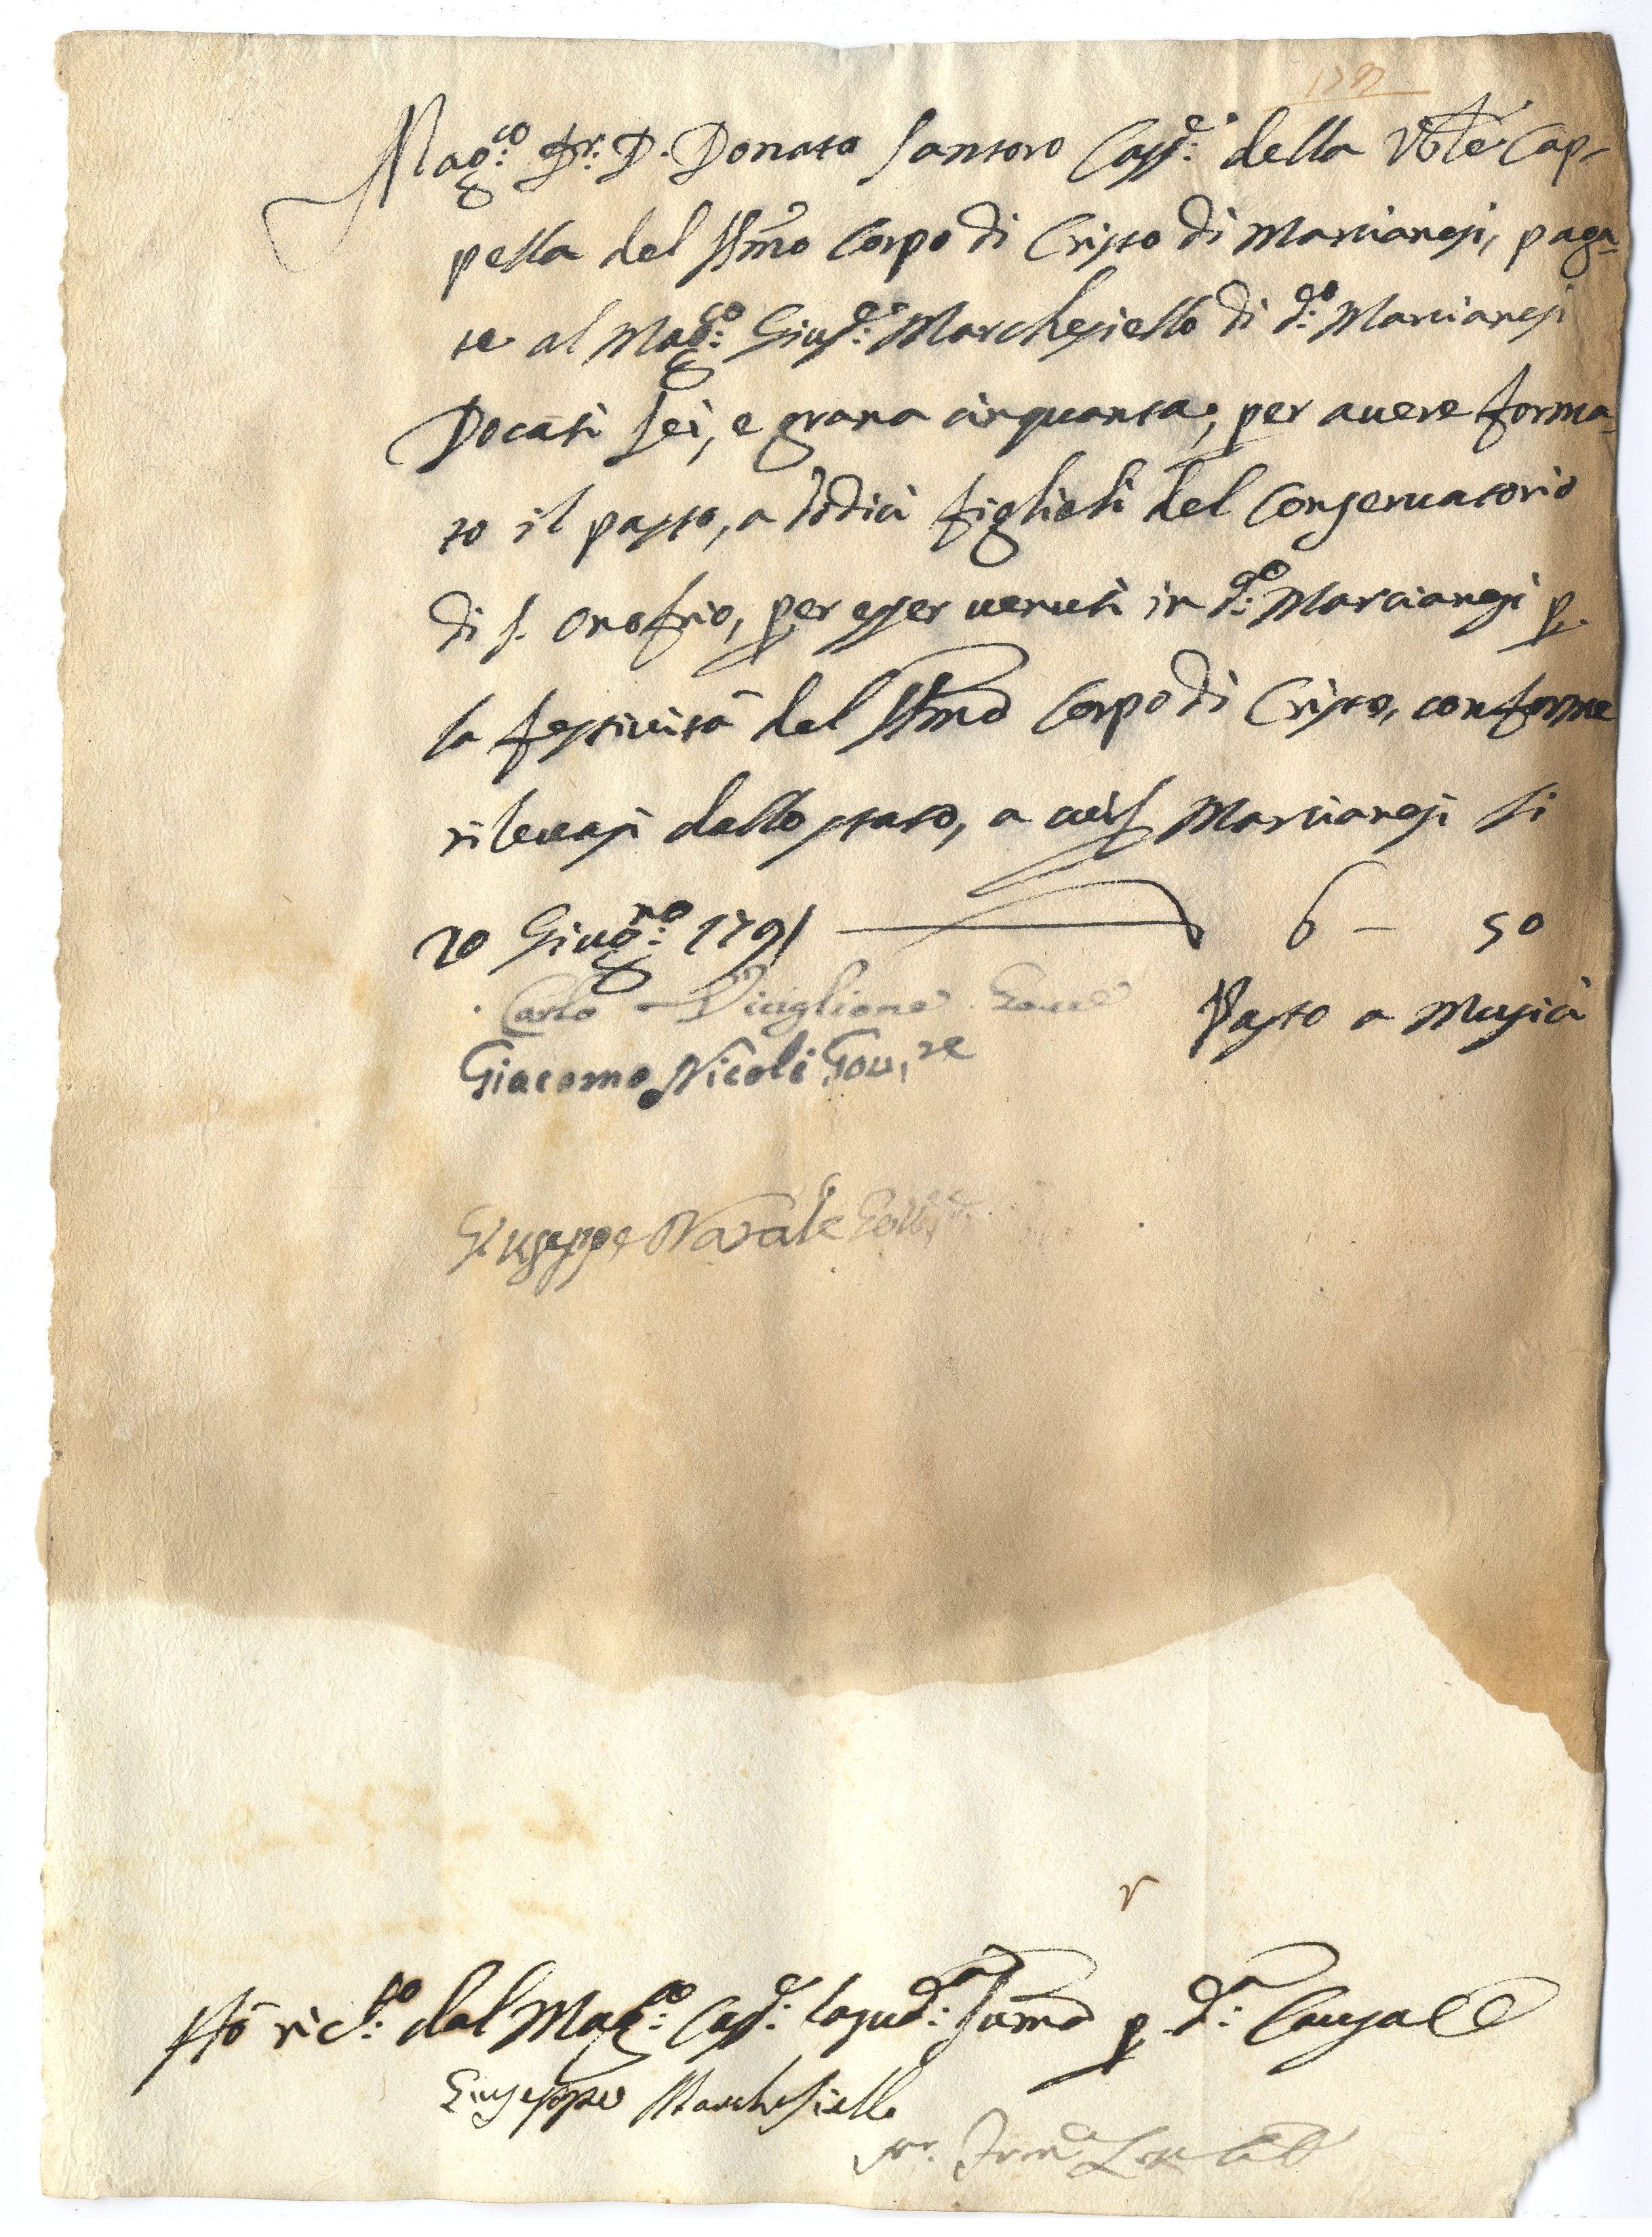 Mag:co Dr: D. Donato Santoro Cass:e della Vble Cap-
pella del SSmo Corpo di Cristo di Marcianesi, paga-
te al Mag:co Gius:e Marchesiello di d:o Marcianesi
Docati sei, e grana cinquanta, per avere forma-
to il pasto, a dodici figlioli del Conservatorio
di S. Onofrio, per esser venuti in d:o Marcianesi p
la festività del SSmo Corpo di Cristo, conforme
rilevasi dallo stato, a Marcianesi li
20 Giug:no 1791 6 - 50
Carlo Viciglione Gove
Pasto a Musici
Giacomo Nicoli Gov,re
Giuseppe Natale
Hò ric:to dal Mag:co Cass:e la sud:a Suma p d:a Causa
Giuseppe Marchesiello